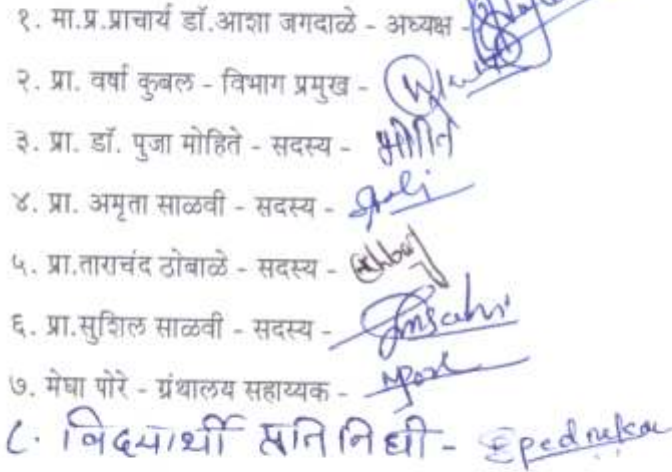 १. मा.प्र.प्राचार्य डॉ.आशा जगदाळे - अध्यक्ष -
२. प्रा. वर्षा कुबल - विभाग प्रमुख -
३. प्रा. डॉ. पुजा मोहिते - सदस्य -
४. प्रा. अमृता साळवी - सदस्य -
५. प्रा.ताराचंद ठोबाळे - सदस्य -
६. प्रा.सुशिल साळवी - सदस्य -
७. मेघा पोरे - ग्रंथालय सहाय्यक - mpore
८. विद्यार्थी प्रतिनिधी - Epednekar